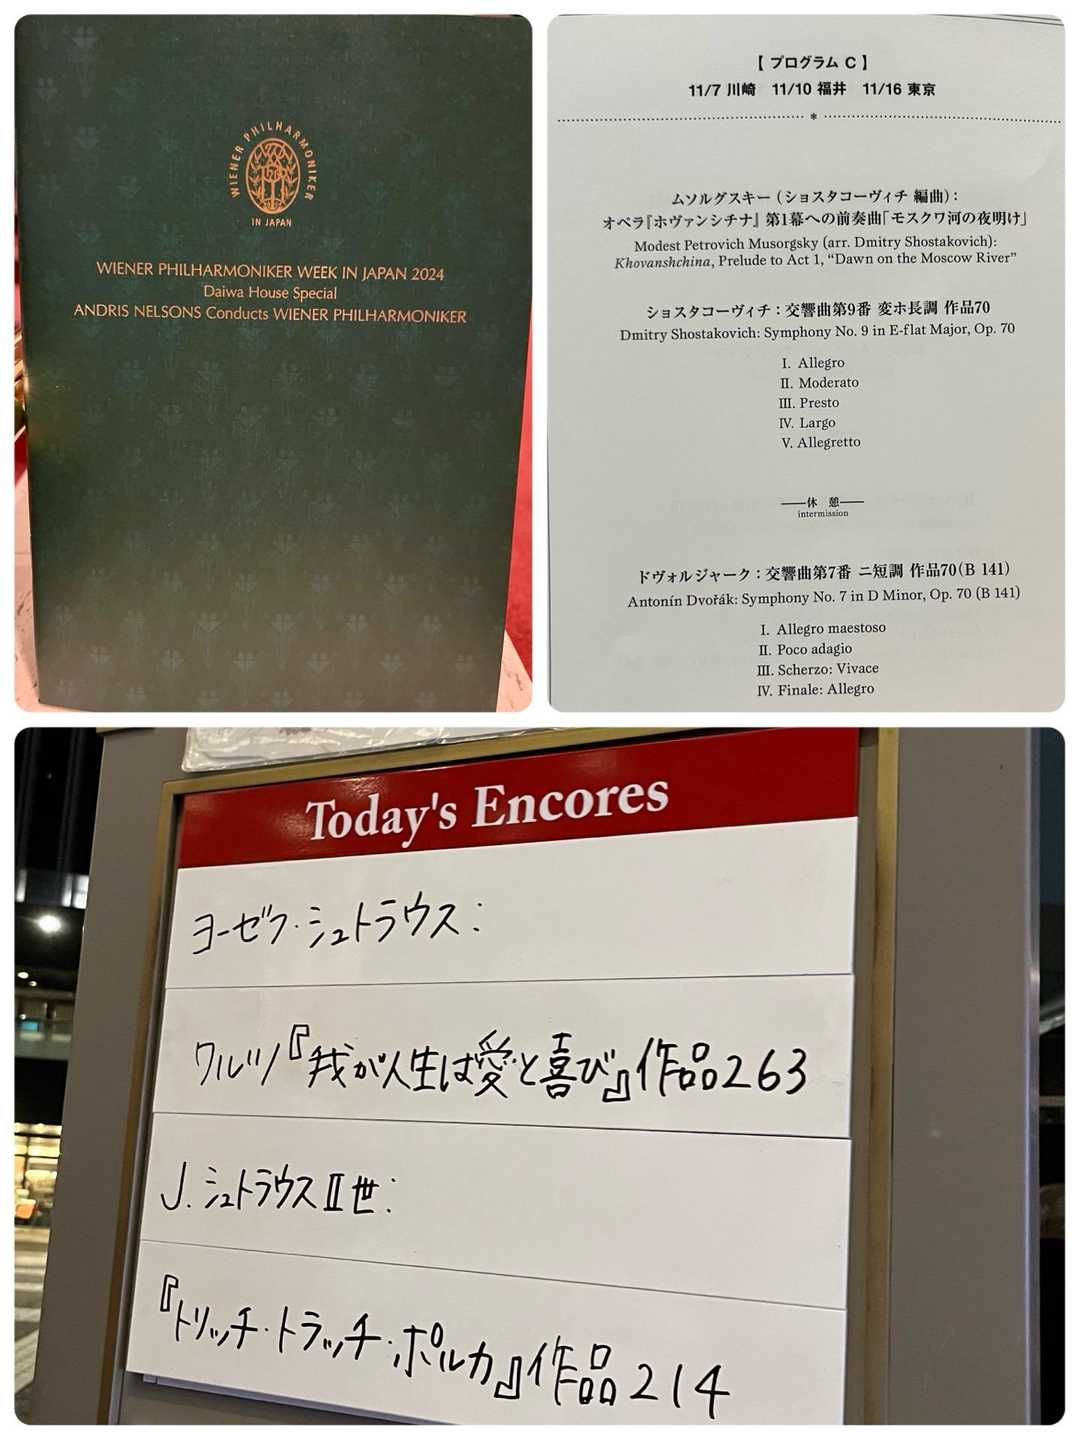 WIENER PHILHARMONIKER
IN JAPAN
WIENER PHILHARMONIKER WEEK IN JAPAN 2024
Daiwa House Special
ANDRIS NELSONS Conducts WIENER PHILHARMONIKER
【 プログラム C 】
11/7 川崎 11/10 福井 11/16 東京
*
ムソルグスキー（ショスタコーヴィチ 編曲）：
オペラ『ホヴァンシチナ』 第1幕への前奏曲「モスクワ河の夜明け」
Modest Petrovich Musorgsky (arr. Dmitry Shostakovich):
Khovanshchina, Prelude to Act 1, “Dawn on the Moscow River”
ショスタコーヴィチ：交響曲第9番 変ホ長調 作品70
Dmitry Shostakovich: Symphony No. 9 in E-flat Major, Op. 70
I. Allegro
II. Moderato
III. Presto
IV. Largo
V. Allegretto
——休 憩——
intermission
ドヴォルジャーク：交響曲第7番 ニ短調 作品70（B 141）
Antonín Dvořák: Symphony No. 7 in D Minor, Op. 70 (B 141)
I. Allegro maestoso
II. Poco adagio
III. Scherzo: Vivace
IV. Finale: Allegro
Today's Encores
ヨーゼフ・シュトラウス：
ワルツ『我が人生は愛と喜び』作品263
J. シュトラウスⅡ世：
『トリッチ・トラッチ・ポルカ』作品214